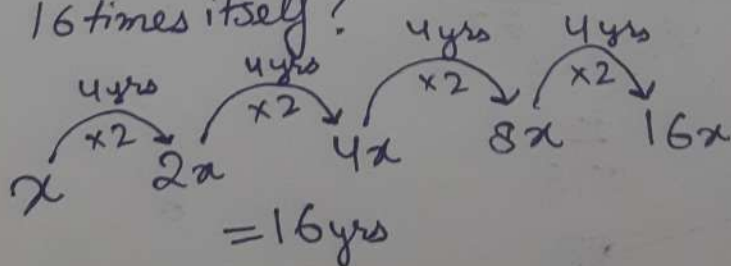 16 times itself?
4yrs 4yrs 4yrs 4yrs
×2 ×2 ×2 ×2
x 2x 4x 8x 16x
=16yrs